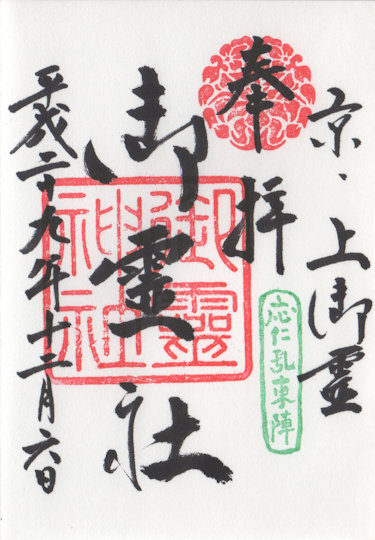 京・上御霊
奉拝
応仁乱東陣
御霊社
御霊神社
平成二十九年十二月六日